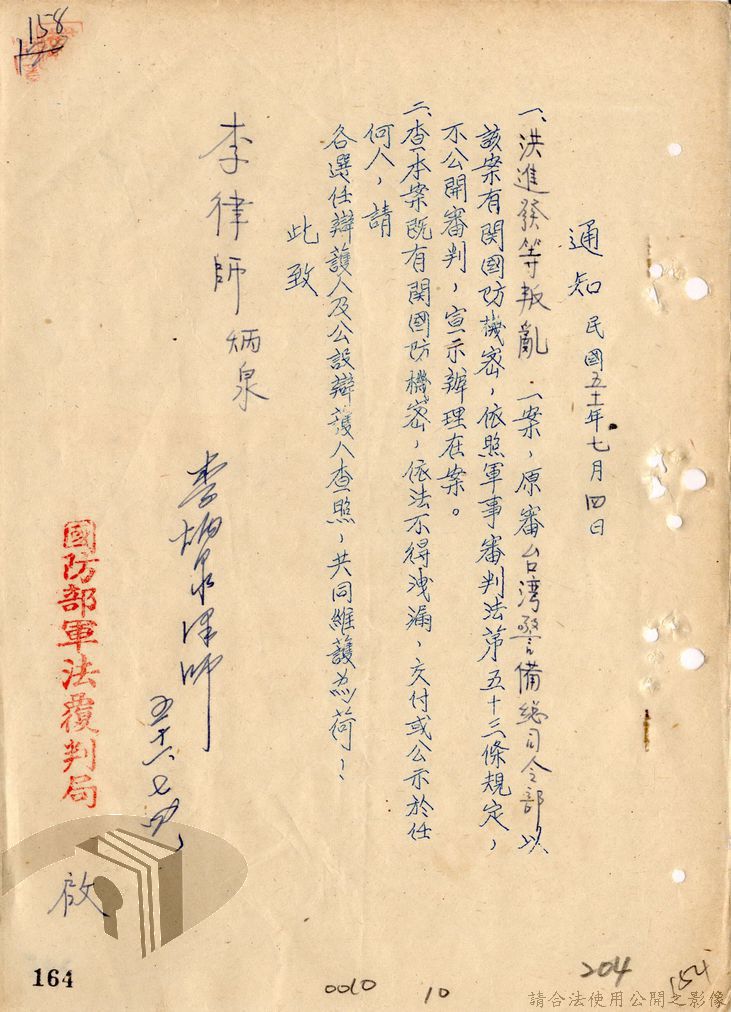 158
通知 民國五十一年七月四日
一、洪進發等叛亂一案,原審台湾警備總司令部以
該案有関國防機密,依照軍事審判法第五十三條規定,
不公開審判,宣示辦理在案。
二、查本案既有関國防機密,依法不得洩漏,交付或公示於任
何人,請
各選任辯護人及公設辯護人查照,共同維護為荷!
此致
李律師炳泉
李炳泉律師
國防部軍法覆判局
啟
164
0010
10
204
154
請合法使用公開之影像